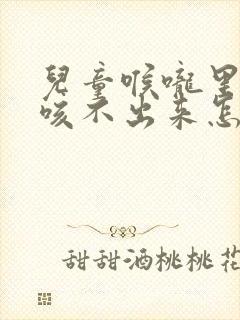 兒童喉嚨里
咳不出來怎
甜甜酒桃桃花